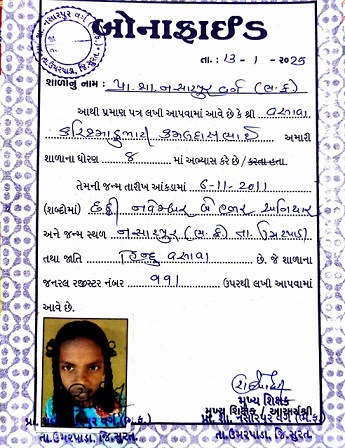 બોનાફાઈડ
તા. : 13 - 1 - 2025
શાળાનું નામ : પ્રા. શા. નસારપુર વર્ગ (ભ.ક.)
આથી પ્રમાણ પત્ર લખી આપવામાં આવે છે કે શ્રી વસાવા
કરિશ્માકુમારી કમલદાસભાઈ અમારી
શાળાના ધોરણ 8 માં અભ્યાસ કરે છે / કરતા હતા.
તેમની જન્મ તારીખ આંકડામાં 6-11-2011
(શબ્દોમાં) છઠ્ઠી નવેમ્બર બે હજાર અગિયાર
અને જન્મ સ્થળ નસારપુર (ભ.ક) તા. ઉમરપાડા
તથા જાતિ હિન્દુ વસાવા છે. જે શાળાના
જનરલ રજીસ્ટર નંબર ૧૧૧ ઉપરથી લખી આપવામાં
આવે છે.
મુખ્ય શિક્ષક
મુખ્ય શિક્ષક / આચાર્યશ્રી
પ્રા. શા. નસારપુર વર્ગ (ભ.ક.)
તા. ઉમરપાડા, જિ. સુરત.